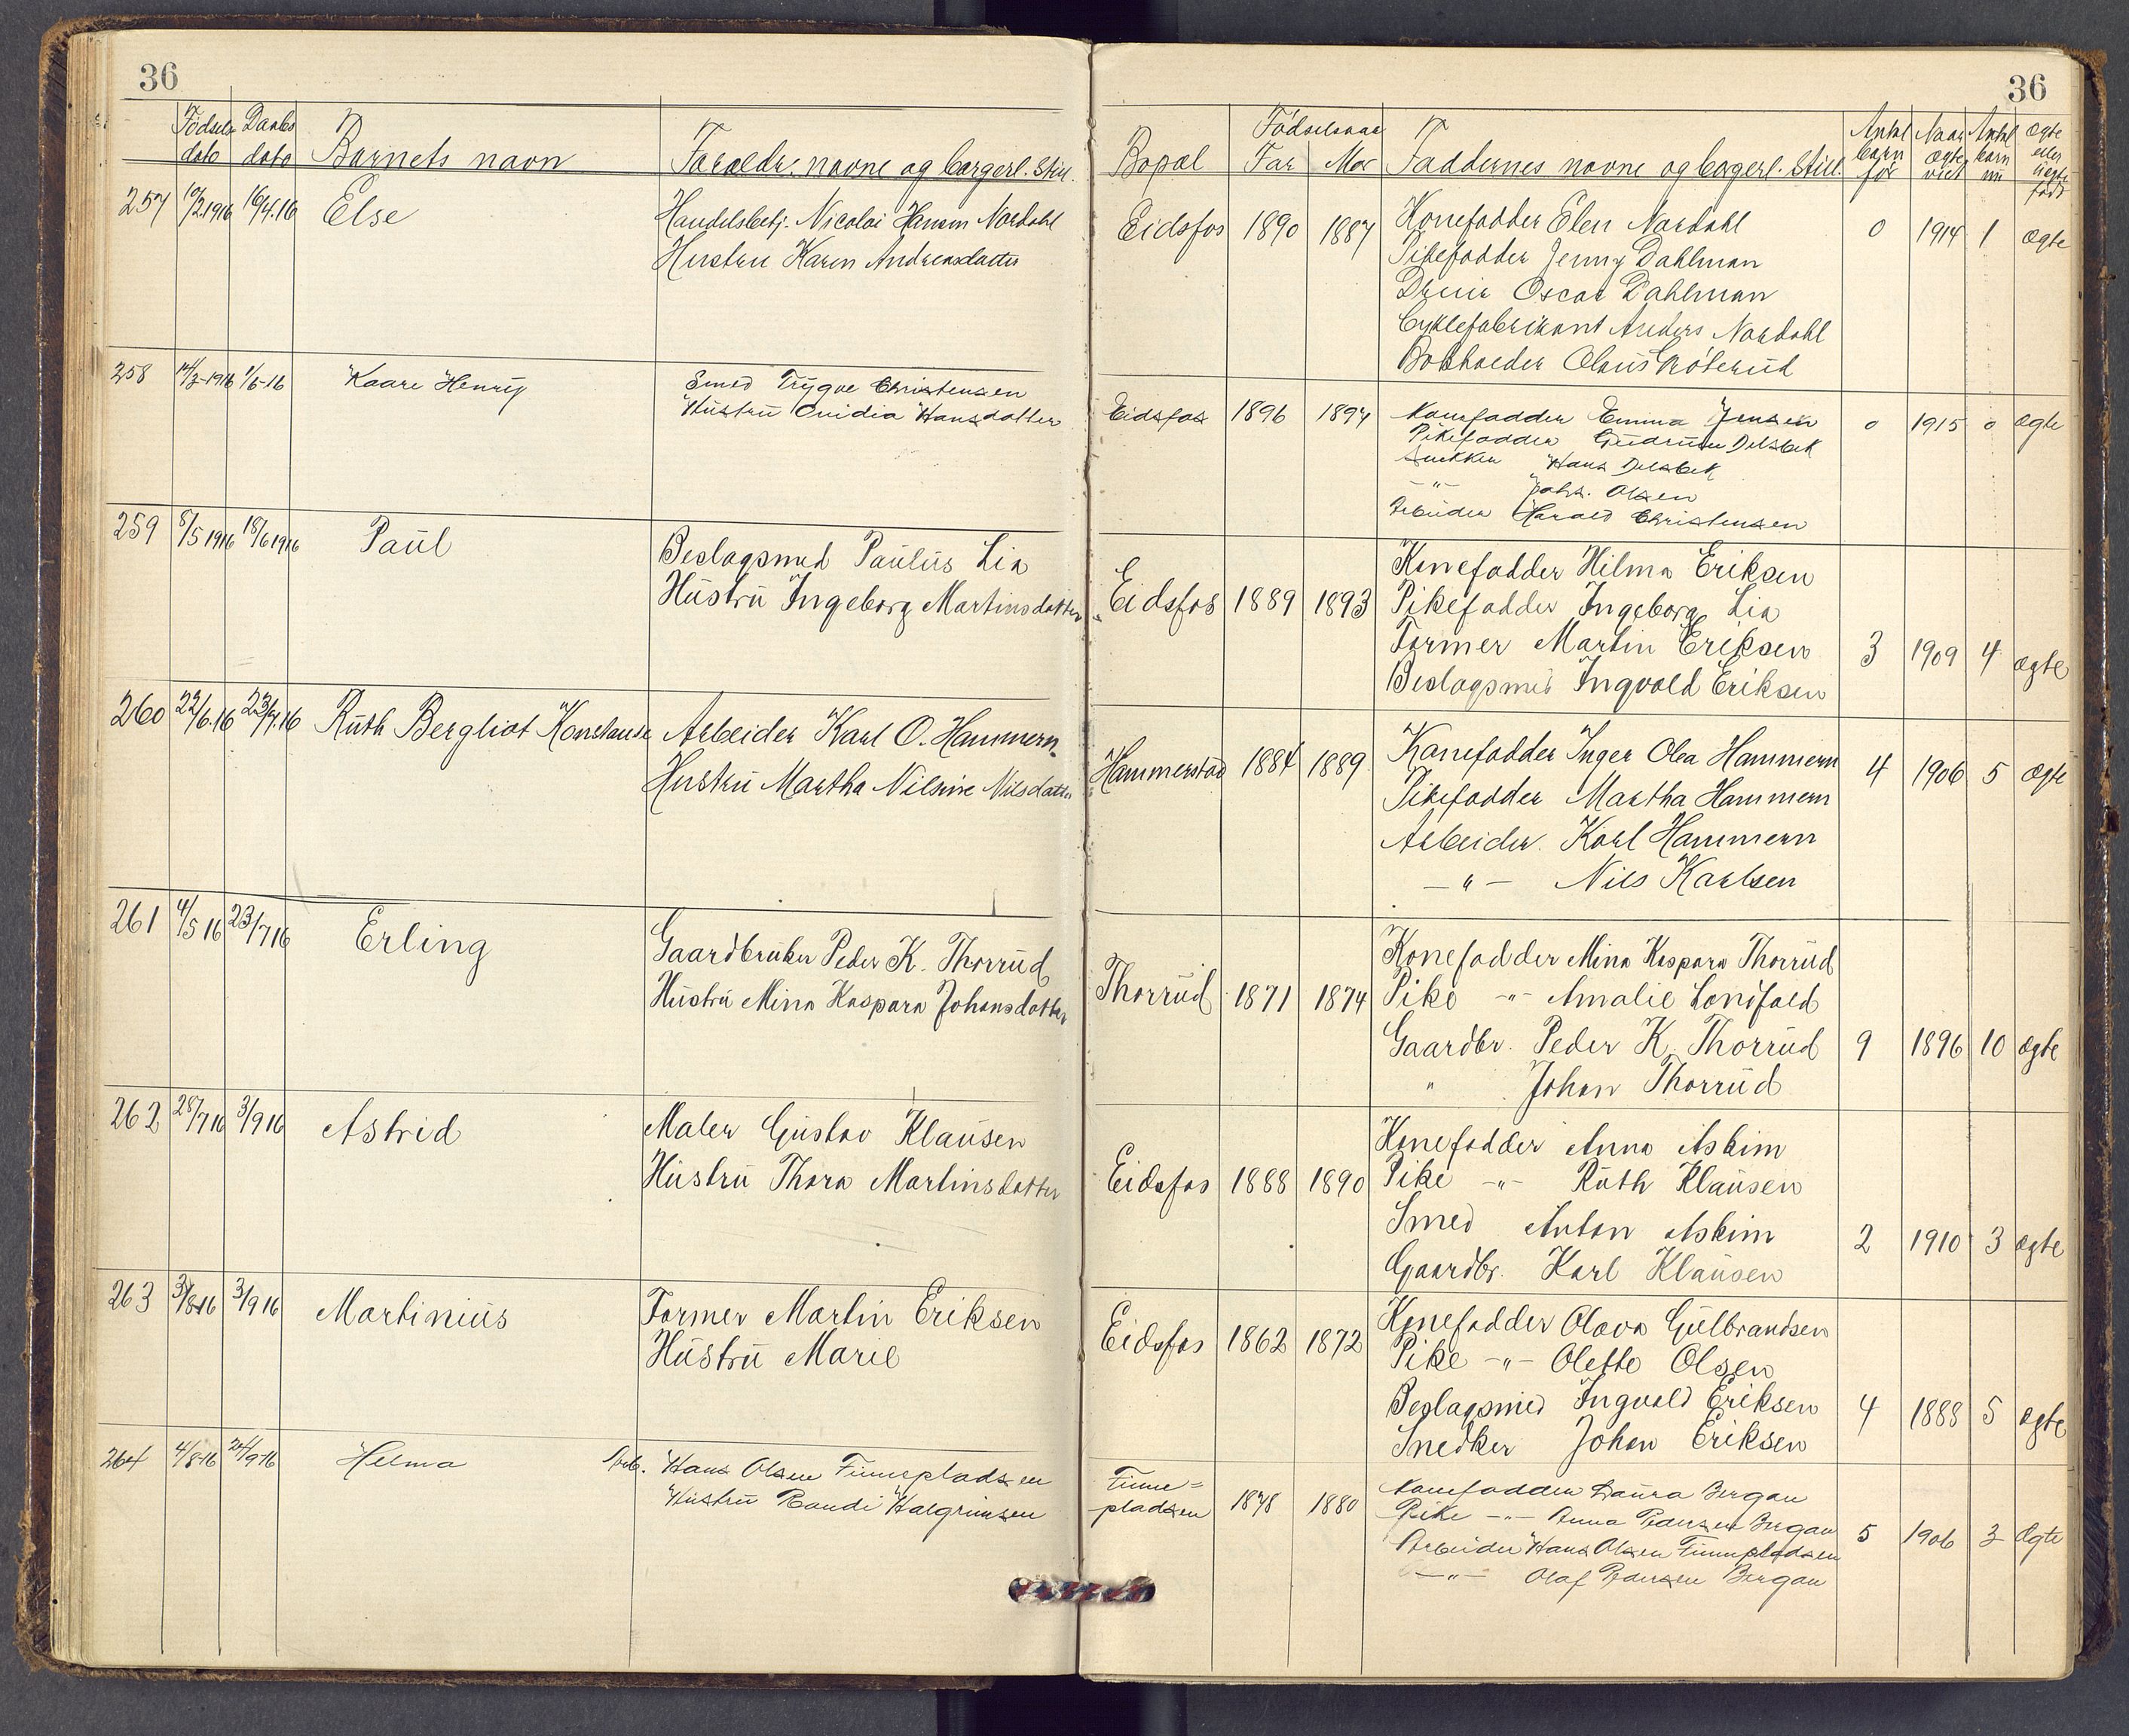 36
Fødsels dato
Daabs dato
Barnets navn
Foreldr. navne og borgerl. Still.
257 10/2 1916 16/4.16 Else
Handelsbetj. Nicolai Hansen Nordahl
Hustru Karen Andreasdatter
258 14/3-1916 1/6-16 Kaare Henry
Smed Trygve Christensen
Hustru Ovidia Hansdatter
259 8/5 1916 18/6 1916 Paul
Beslagsmed Paulus Lia
Hustru Ingeborg Martinsdatter
260 22/6.16 23/7.16 Ruth Bergliot Konstanse
Arbeider Karl O. Hammern
Hustru Martha Nilsine Nilsdatter
261 4/5 16 23/7 16 Erling
Gaardbruker Peder K. Thorrud
Hustru Mina Kaspara Johansdatter
262 28/7 16 3/9 16 Astrid
Maler Gustav Klausen
Hustru Thora Martinsdatter
263 3/8 16 3/9 16 Martinius
Former Martin Eriksen
Hustru Marie
264 4/8-16 24/9-16 Helma
Arb. Hans Olsen Finnepladsen
Hustru Randi Halgrimsen
36
Bopæl
Fødselsaar
Far Mor
Faddernes navne og borgerl. Still.
Antal barn før
Naar egteviet
Antal barn nu
Ægte eller uegte født
Eidsfos 1890 1887 Konefadder Elen Nordahl 0 1914 1 Ægte
Pikefadder Jenny Dahlman
Oscar Dahlman
Cyklefabrikant Anders Nordahl
Bokholder Olaus Grøterud
Eidsfos 1896 1894 Konefadder Emma Jensen 0 1915 0 Ægte
Pikefadder Gudrun Delsbek
Snekker Hans Delsbek
-"- Johs. Olsen
Arbeider Harald Christensen
Konefadder Hilma Eriksen
Eidsfos 1889 1893 Pikefadder Ingeborg Lia
Former Martin Eriksen 3 1909 4 ægte
Beslagsmed Ingvald Eriksen
Hammerstad 1884 1889 Konefadder Inger Olea Hammern 4 1906 5 Ægte
Pikefadder Martha Hammern
Arbeider. Karl Hammern
-"- Nils Karlsen
Konefadder Mina Kaspara Thorrud
Thorrud 1871 1874 Pike -"- Amalie Londfald
Gaardbr. Peder K. Thorrud 9 1896 10 ægte
" Johan Thorrud
Konefadder Anna Askim
Eidsfos 1888 1890 Pike -"- Ruth Klausen
Smed Anton Askim 2 1910 3 ægte
Gaardbr. Karl Klausen
Konefadder Olava Gulbrandsen
Eidsfos 1862 1872 Pike -"- Olette Olsen
Beslagsmed Ingvald Eriksen 4 1888 5 ægte
Snedker Johan Eriksen
Finnepladsen 1878 1880 Konefadder Laura Bergan
Pike -"- Anna Pedersen Bergan 5 1906 3 Ægte
Arbeider Hans Olsen Finnepladsen
-"- Olaf Pedersen Bergan